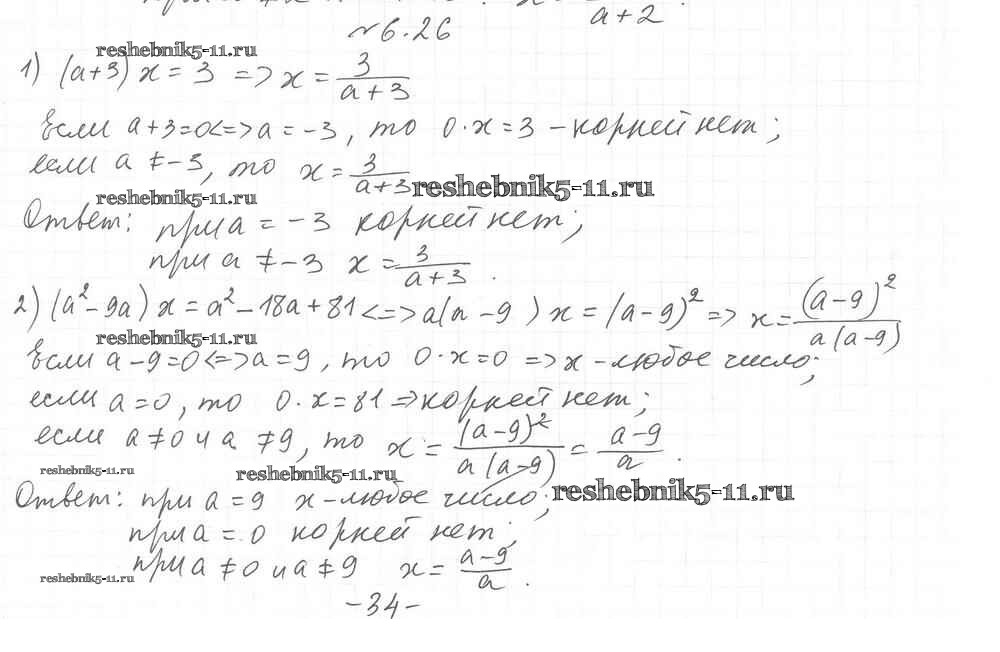 a+2 .
№6.26
reshebnik5-11.ru
1) (a+3) x = 3 => x = 3/(a+3)
Если a+3=0<=>a=-3, то 0·x=3 – корней нет;
если a ≠ -3, то x = 3/(a+3)
reshebnik5-11.ru
reshebnik5-11.ru
Ответ: при a = -3 корней нет;
при a ≠ -3 x = 3/(a+3) .
2) (a²-9a) x = a²-18a+81 <=> a(a-9) x = (a-9)² => x = (a-9)²/(a(a-9))
reshebnik5-11.ru
Если a-9=0<=>a=9, то 0·x=0 => x – любое число;
если a=0, то 0·x=81 => корней нет;
если a≠0 и a≠9, то x = (a-9)²/(a(a-9)) = (a-9)/a .
reshebnik5-11.ru
reshebnik5-11.ru
reshebnik5-11.ru
Ответ: при a=9 x – любое число;
при a=0 корней нет;
при a≠0 и a≠9 x = (a-9)/a .
reshebnik5-11.ru
-34-